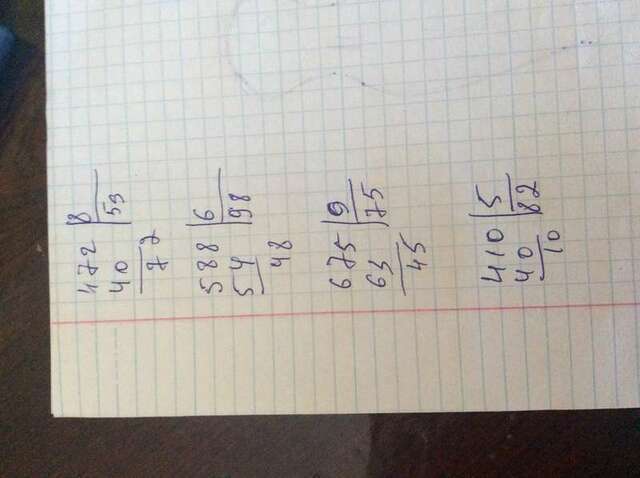 472 8
40 59
72
588 6
54 98
48
675 9
63 75
45
410 5
40 82
10